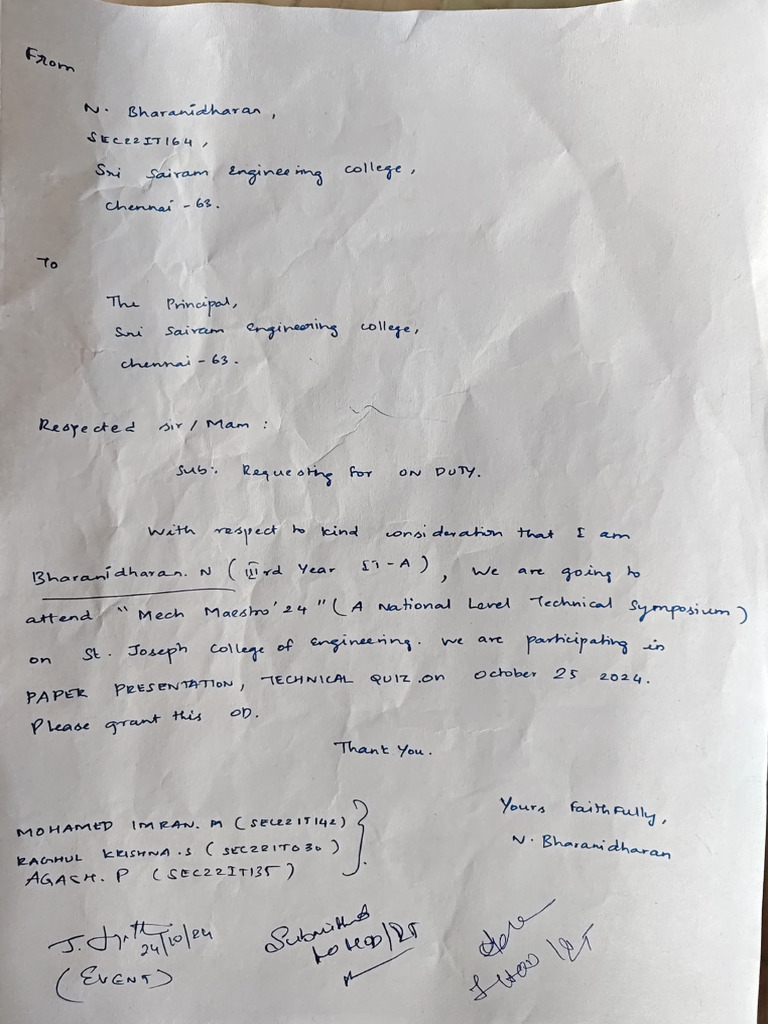 From
N. Bharanidharan,
SEC22IT164,
Sri Sairam Engineering college,
Chennai - 63.
To
The Principal,
Sri Sairam Engineering college,
Chennai - 63.
Respected sir / Mam :
Sub: Requesting for ON DUTY.
With respect to kind consideration that I am
Bharanidharan. N (IIIrd Year IT-A), We are going to
attend "Mech Maestro'24" (A National Level Technical Symposium)
on St. Joseph College of Engineering. We are participating in
PAPER PRESENTATION, TECHNICAL QUIZ .on October 25 2024.
Please grant this OD.
Thank You.
Yours Faithfully,
N. Bharanidharan
MOHAMED IMRAN. M (SEC22IT142)
RAGHUL KRISHNA .S (SEC22IT030)
AGASH. P (SEC22IT135)
24/10/24
(EVENT)
Submitted
to HOD/IT
HOD/IT